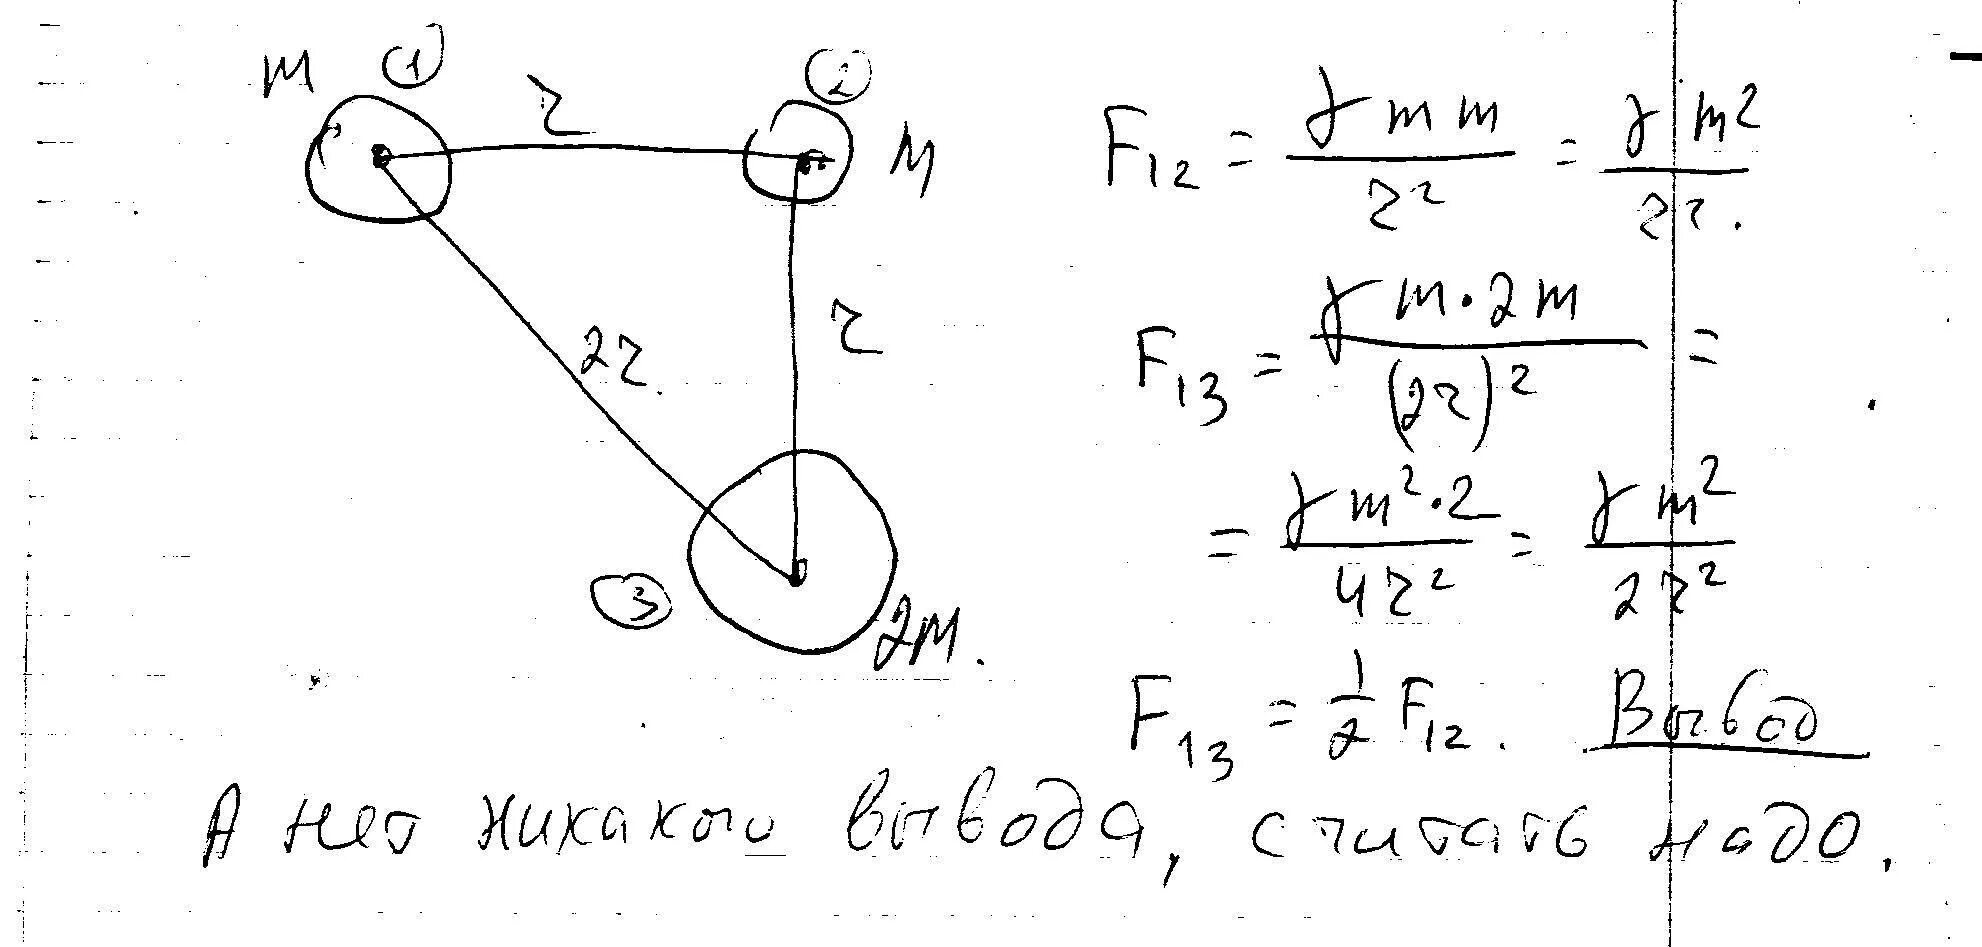 m ① r ② m
F₁₂ = γmm/r² = γm²/r².
2r r
F₁₃ = γm·2m/(2r)² =
= γm²·2/4r² = γm²/2r²
③ 2m.
F₁₃ = 1/2 F₁₂. Вывод
А нет никакого вывода, считать надо.